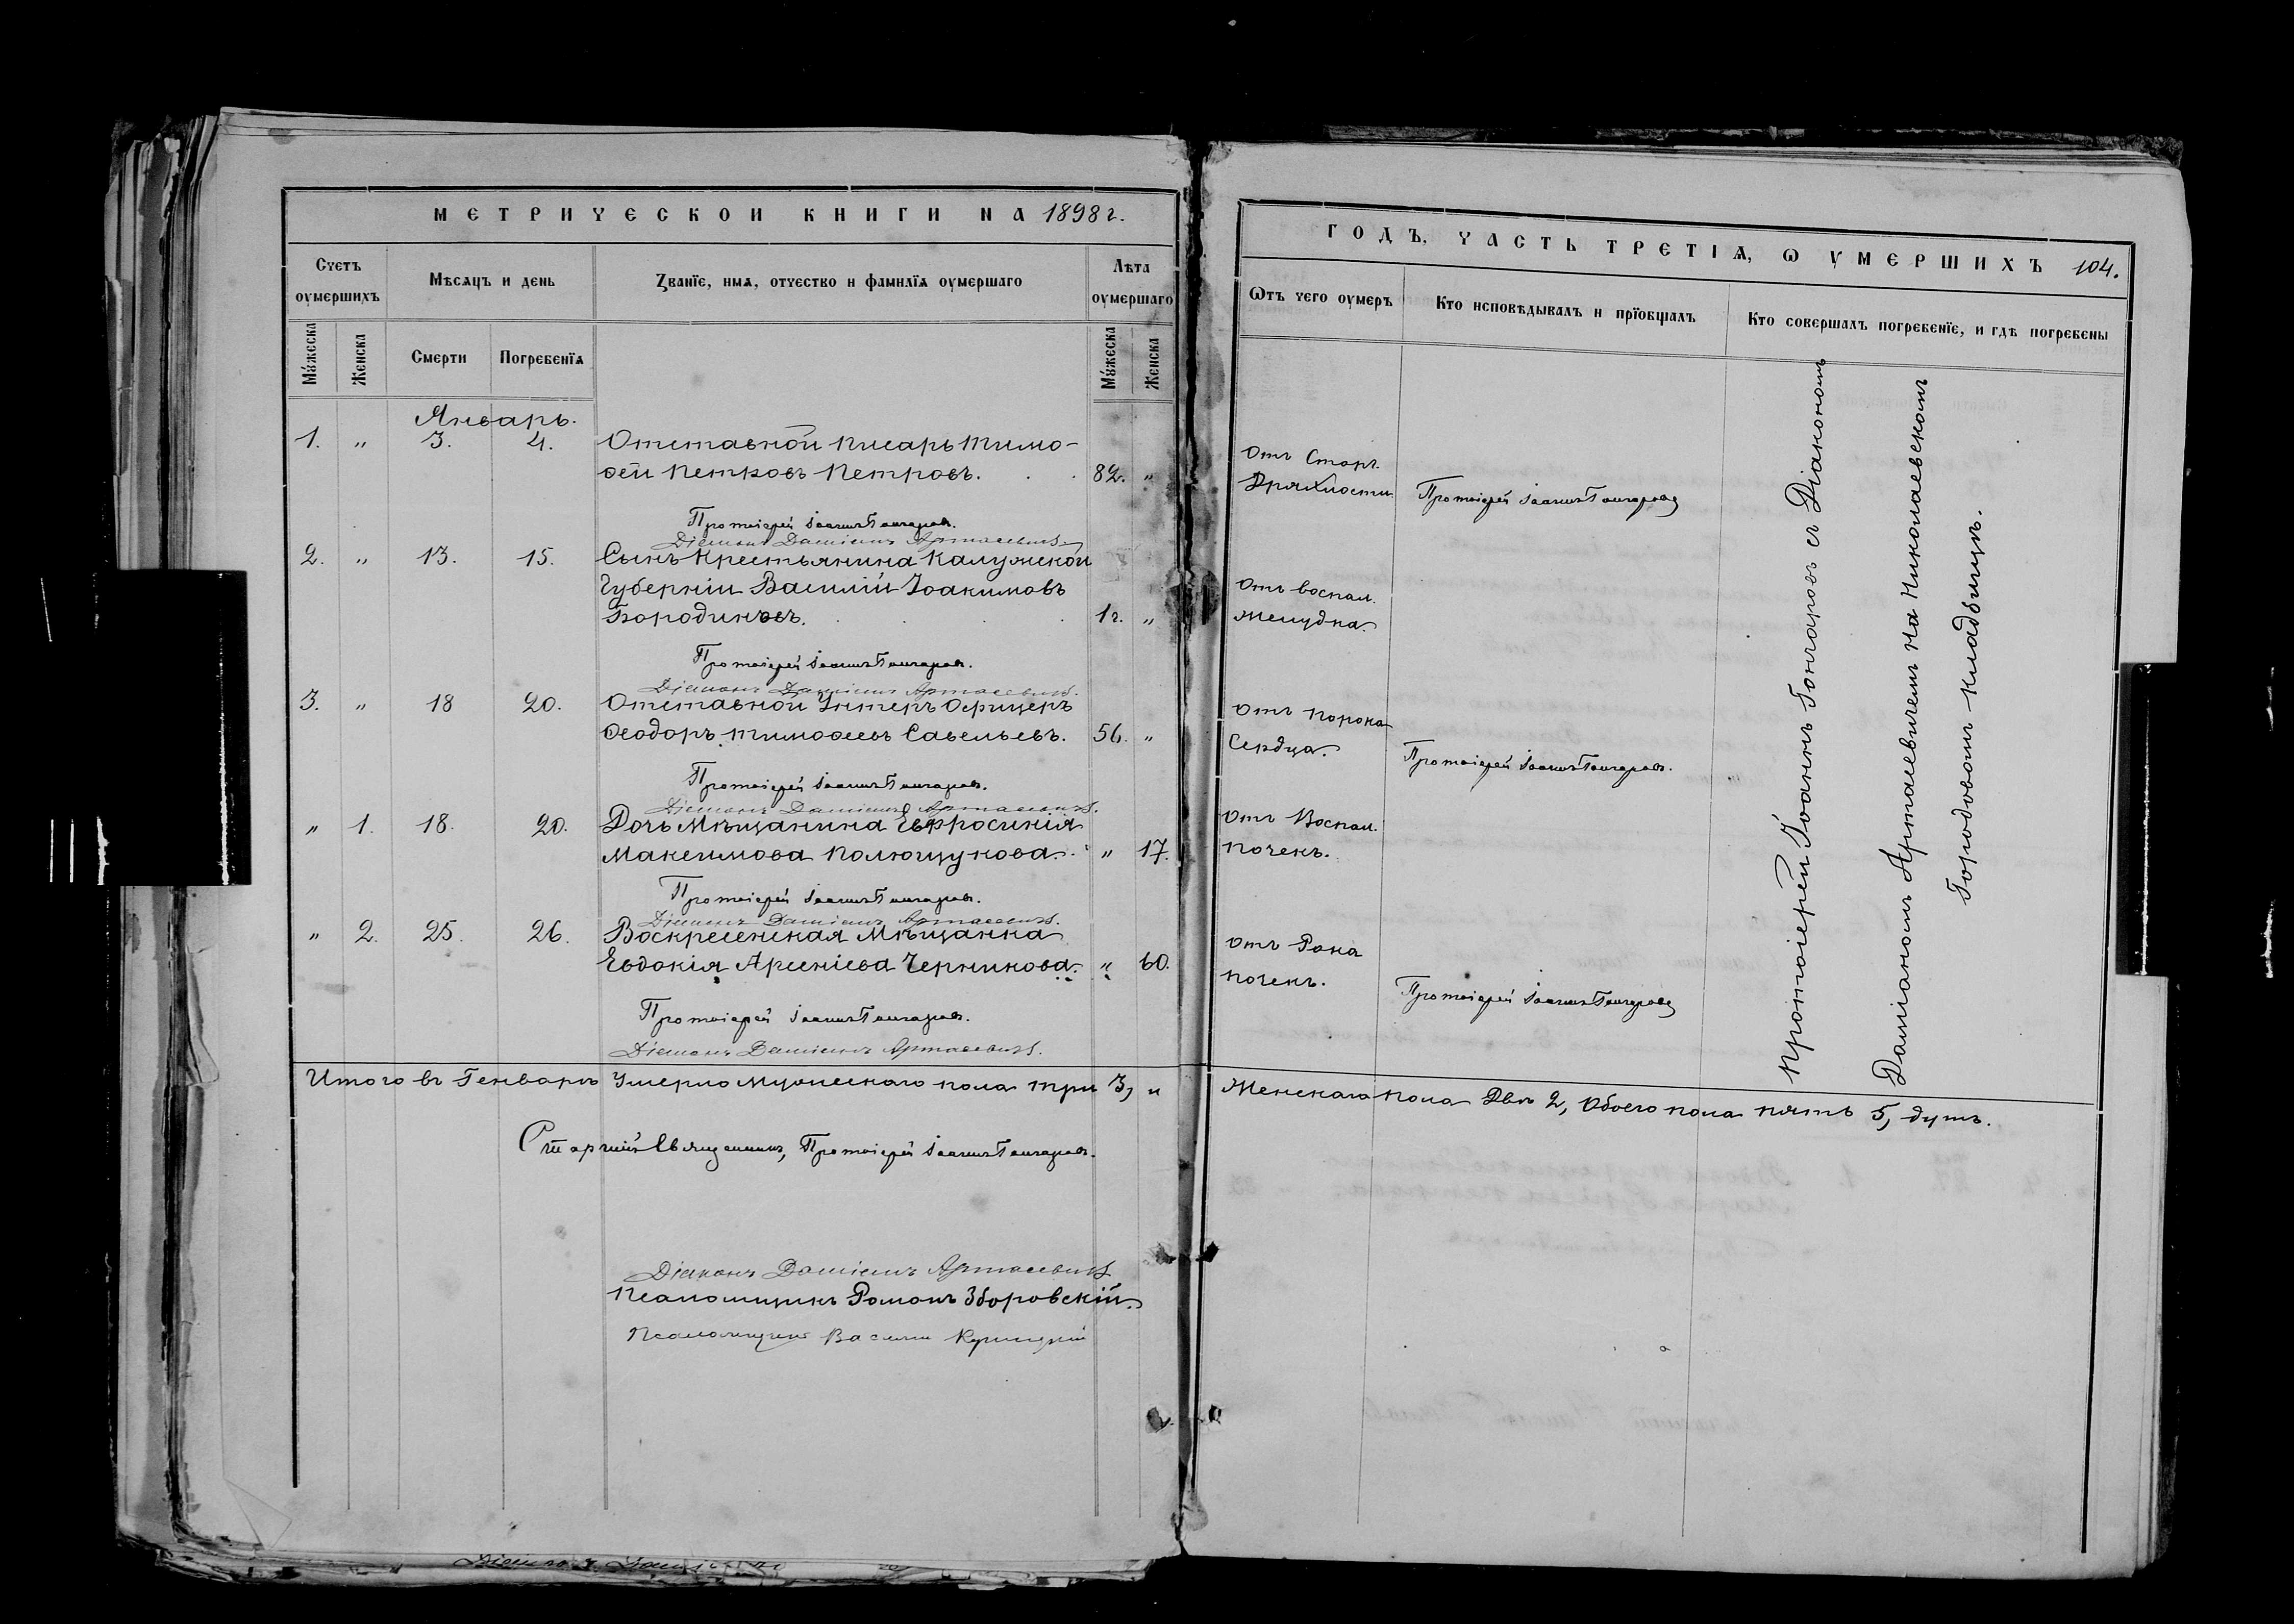 МЕТРИЧЕСКОЙ КНИГИ НА 1898 г.
Счетъ оумершихъ
Мѣсяцъ и день
Званїе, имя, отчество и фамилїя оумершаго
Лѣта оумершаго
Мужеска
Женска
Смерти
Погребенїя
Мужеска
Женска
Январь.
1. " 3. 4. Отставной писарь Тимо-
ѳей Петровъ Петровъ. 82. "
Протоіерей Іоаннъ Гончаровъ.
Діаконъ Даміанъ Артасевичъ.
2. " 13. 15. Сынъ Крестьянина Калужской
Губерніи Василій Іоакимовъ
Бородинъ. 1 г. "
Протоіерей Іоаннъ Гончаровъ.
Діаконъ Даміанъ Артасевичъ.
3. " 18 20. Отставной Унтеръ Офицеръ
Ѳеодоръ Тимоѳеевъ Савельевъ. 56. "
Протоіерей Іоаннъ Гончаровъ.
Діаконъ Даміанъ Артасевичъ.
" 1. 18. 20. Дочь Мѣщанина Евфросинія
Максимова Полющукова. " 17.
Протоіерей Іоаннъ Гончаровъ.
Діаконъ Даміанъ Артасевичъ.
" 2. 25. 26. Воскресенская Мѣщанка
Евдокія Арсеніева Черникова. " 60.
Протоіерей Іоаннъ Гончаровъ.
Діаконъ Даміанъ Артасевичъ.
Итого въ Генварѣ Умерло Мужескаго пола три 3, и
Старшій Священникъ, Протоіерей Іоаннъ Гончаровъ.
Діаконъ Даміанъ Артасевичъ
Псаломщикъ Романъ Зборовскій.
Псаломщикъ Василій
ГОДЪ, ЧАСТЬ ТРЕТІЯ, Ѡ УМЕРШИХЪ 104.
Ѡтъ чего оумеръ
Кто исповѣдывалъ и прїобщалъ
Кто совершалъ погребенїе, и гдѣ погребены
Отъ Стар.
Дряхлости. Протоіерей Іоаннъ Гончаровъ
Отъ воспал.
желудка.
Отъ порока
Сердца. Протоіерей Іоаннъ Гончаровъ.
Отъ Воспал.
почекъ.
Отъ Рака
почекъ. Протоіерей Іоаннъ Гончаровъ
Протоіерей Іоаннъ Гончаровъ съ Діакономъ
Даміаномъ Артасевичемъ на Николаевскомъ
Городовомъ кладбищѣ.
Женскаго пола Двѣ 2, Обоего пола пять 5, душъ.